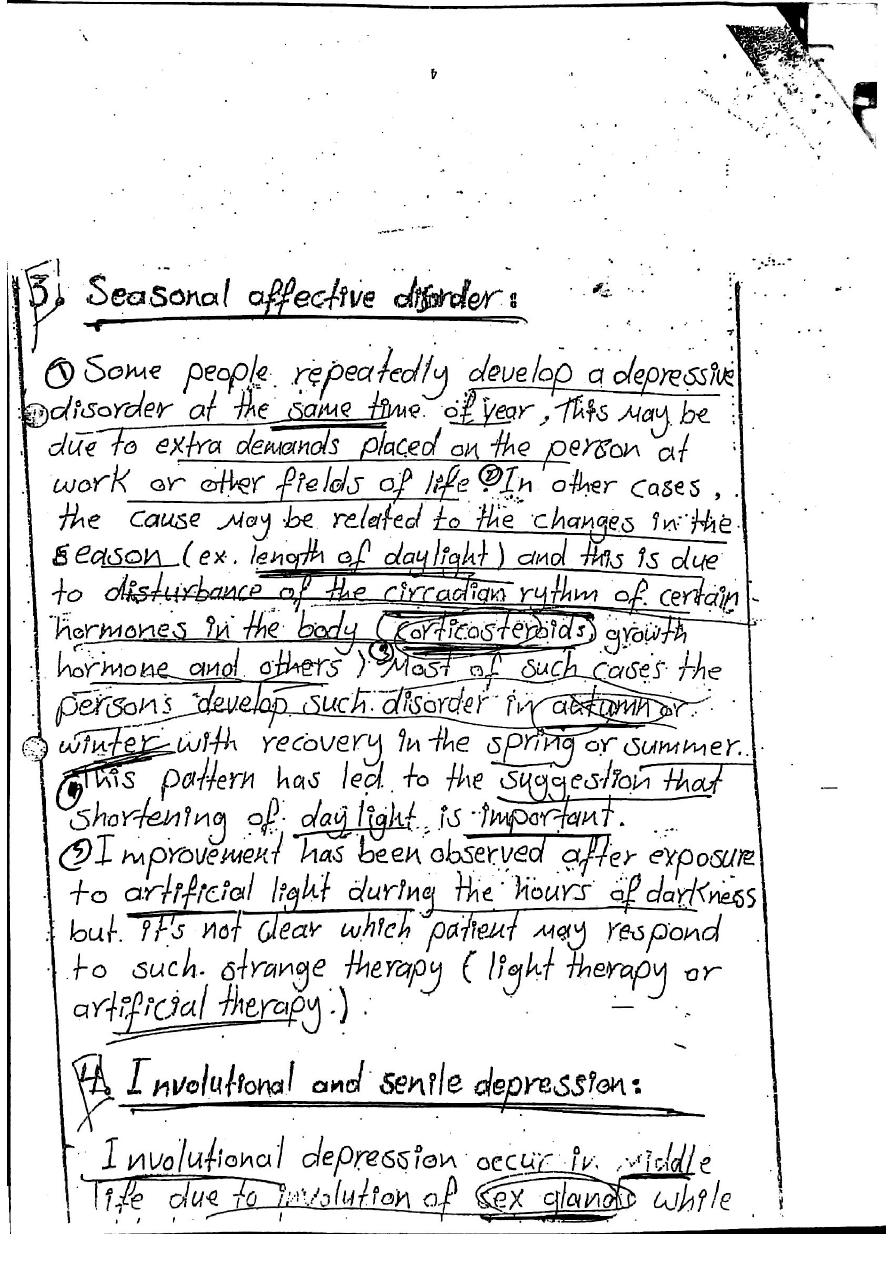 4
3. Seasonal affective disorder:
① Some people repeatedly develop a depressive
disorder at the same time of year, This may be
due to extra demands placed on the person at
work or other fields of life. ② In other cases,
the cause may be related to the changes in the
season (ex. length of daylight) and this is due
to disturbance of the circadian rythm of certain
hormones in the body (corticosteroids, growth
hormone and others) ③ Most of such cases the
persons develop such disorder in autumn or
winter with recovery in the spring or summer.
④ This pattern has led to the suggestion that
shortening of day light is important.
⑤ Improvement has been observed after exposure
to artificial light during the hours of darkness
but it's not clear which patient may respond
to such strange therapy (light therapy or
artificial therapy.).
4. Involutional and senile depression:
Involutional depression occur in middle
life due to involution of sex glands while